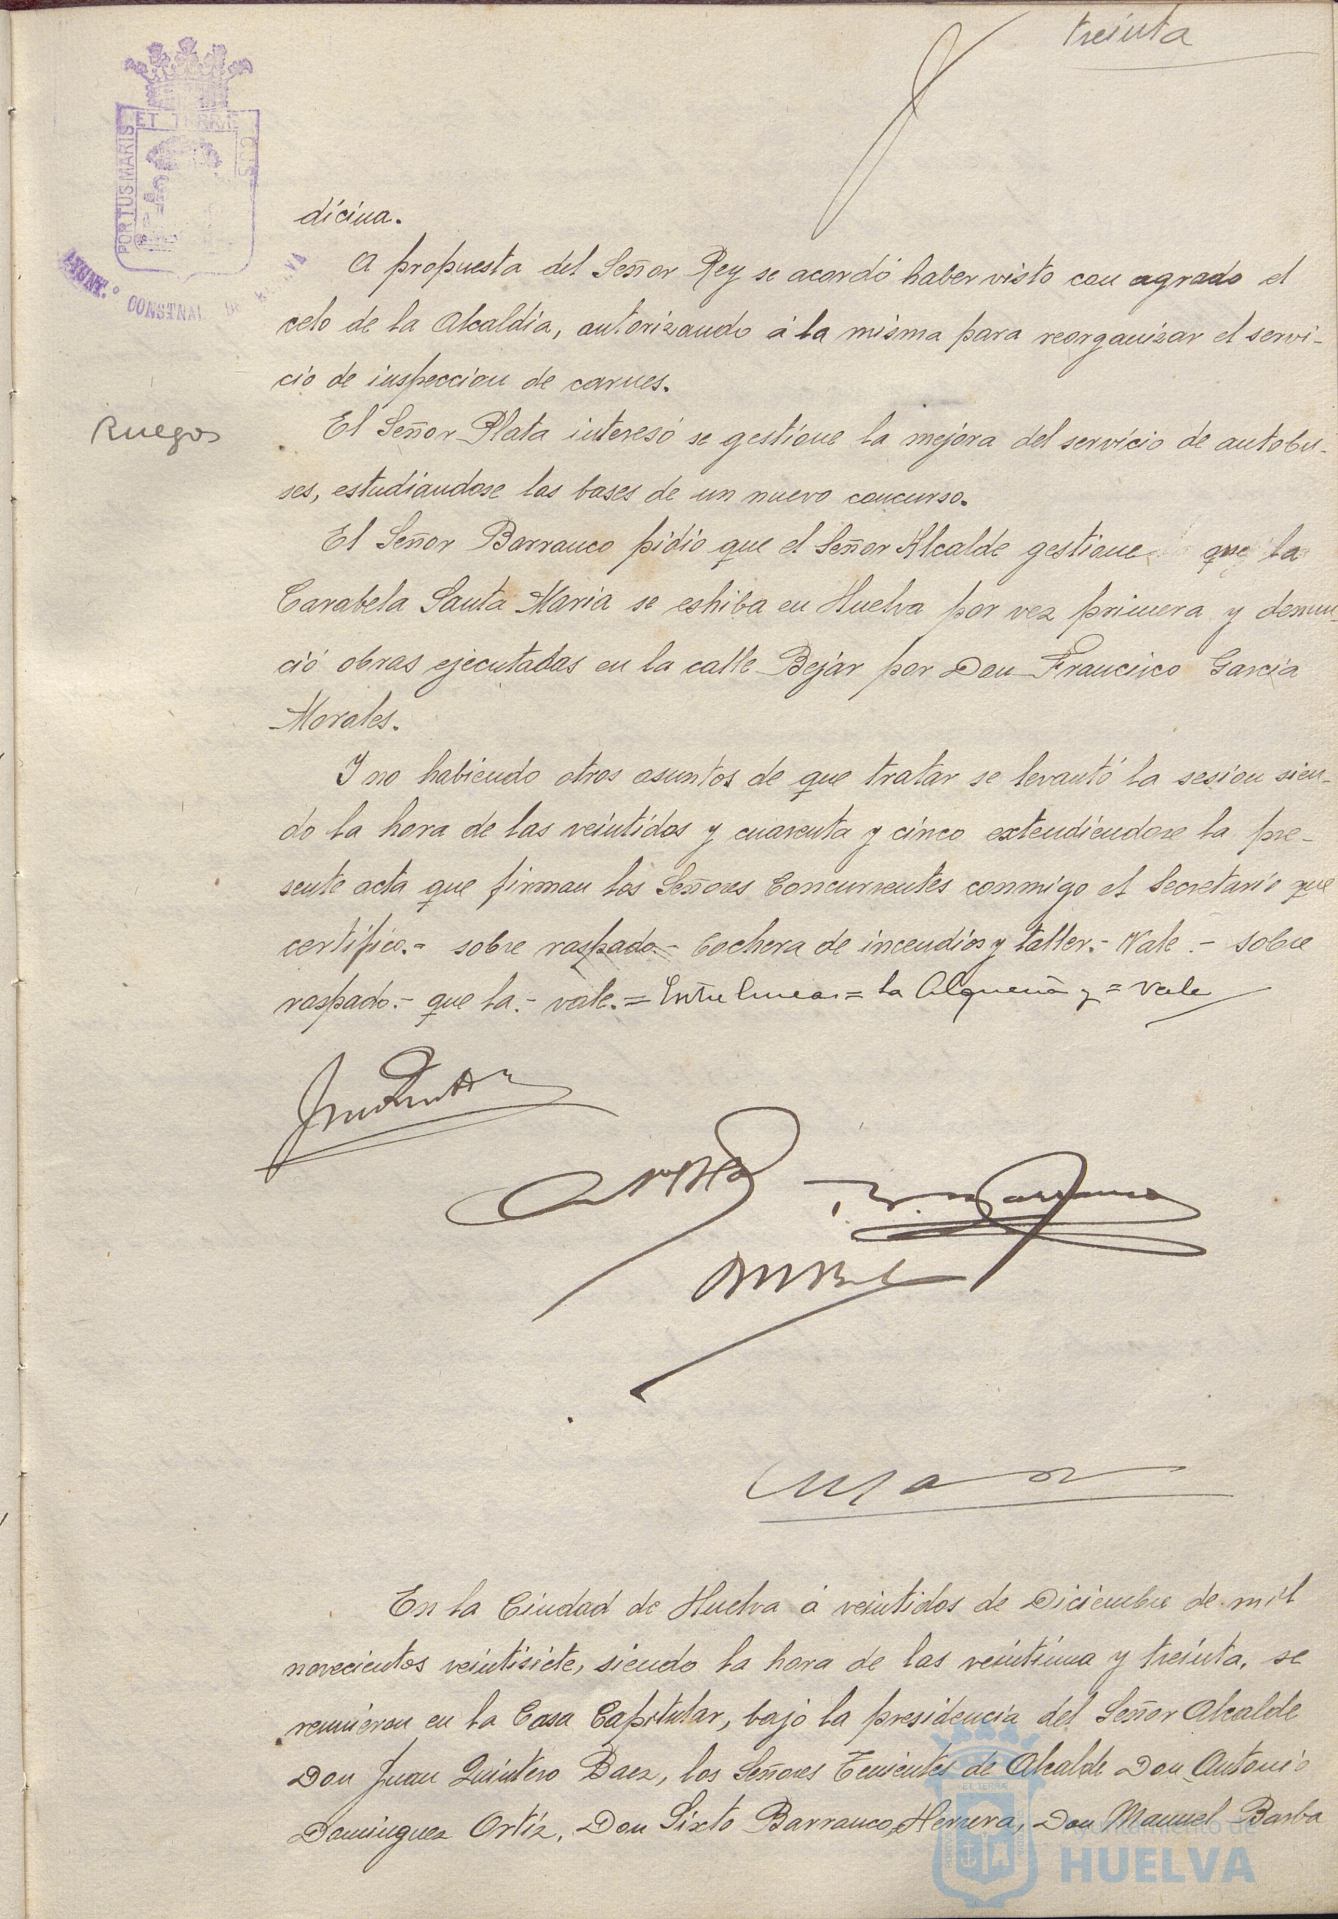 treinta
PORTUS MARIS
ET TERRÆ
CUS
AYUNT.º CONSTNAL DE
dicina.
A propuesta del Señor Rey se acordó haber visto con agrado el
celo de la Alcaldía, autorizando á la misma para reorganizar el servi-
cio de inspeccion de carnes.
Ruegos
El Señor Plata interesó se gestione la mejora del servicio de autobu-
ses, estudiandose las bases de un nuevo concurso.
El Señor Barranco pidio que el Señor Alcalde gestione que la
Carabela Santa Maria se eshiba en Huelva por vez primera y denun-
ció obras ejecutadas en la calle Bejar por Don Francisco Garcia
Morales.
Y no habiendo otros asuntos de que tratar se levantó la sesion sien-
do la hora de las veintidos y cuarenta y cinco extendiendose la pre-
sente acta que firman los Señores Concurrentes conmigo el Secretario que
certifico.- sobre raspado.- Cochera de incendios y taller.- Vale.- sobre
raspado.- que la.- vale.= Entre lineas = la Alqueria y = vale
En la Ciudad de Huelva á veintidos de Diciembre de mil
novecientos veintisiete, siendo la hora de las veintiuna y treinta, se
reunieron en la Casa Capitular, bajo la presidencia del Señor Alcalde
Don Juan Quintero Baez, los Señores Tenientes de Alcalde Don Antonio
Dominguez Ortiz, Don Sixto Barranco Herrera, Don Manuel Barba
Ayuntamiento de
HUELVA